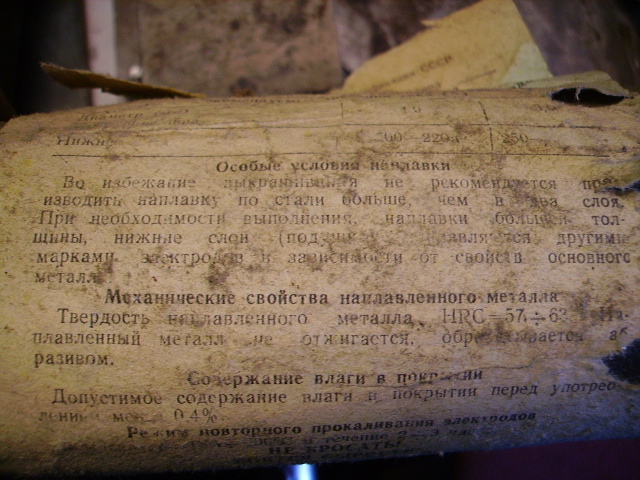 СССР
Диаметр
Нижн
220а 250
Особые условия наплавки
Во избежание выкрашивания не рекомендуется про-
изводить наплавку по стали больше, чем в два слоя.
При необходимости выполнения наплавки большей тол-
щины, нижние слои другими
марками электродов в зависимости от свойств основного
металла
Механические свойства наплавленного металла
Твердость наплавленного металла HRC=57÷63. На-
плавленный металл не отжигается, обрабатывается аб-
разивом.
Содержание влаги в покрытии
Допустимое содержание влаги в покрытии перед употреб-
лением 0,4%
Режим повторного прокаливания электродов
С в течение
НЕ БРОСАТЬ!